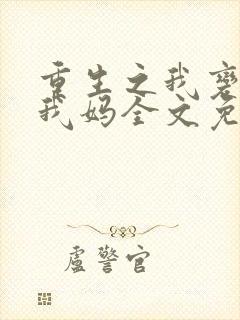 重生之我
我妈全文免
卢警官